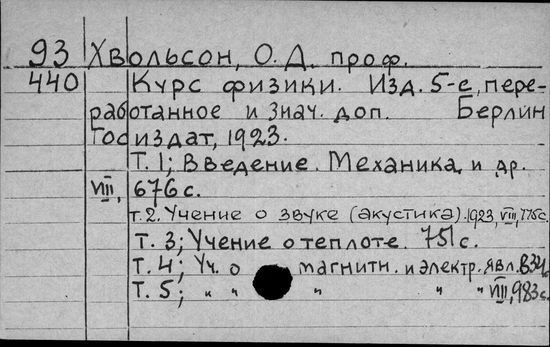 93 Хвольсон, О.Д. проф.
440 Курс физики. Изд. 5-е, пере-
работанное и знач. доп. Берлин
Госиздат, 1923.
Т. 1; Введение. Механика и др.
VIII, 676 с.
т. 2. Учение о звуке (акустика). 1923, VIII, 776с.
Т. 3; Учение о теплоте. 751 с.
Т. 4; Уч. о магнитн. и электр. явл.
Т. 5; " " " " " VIII, 983 с.